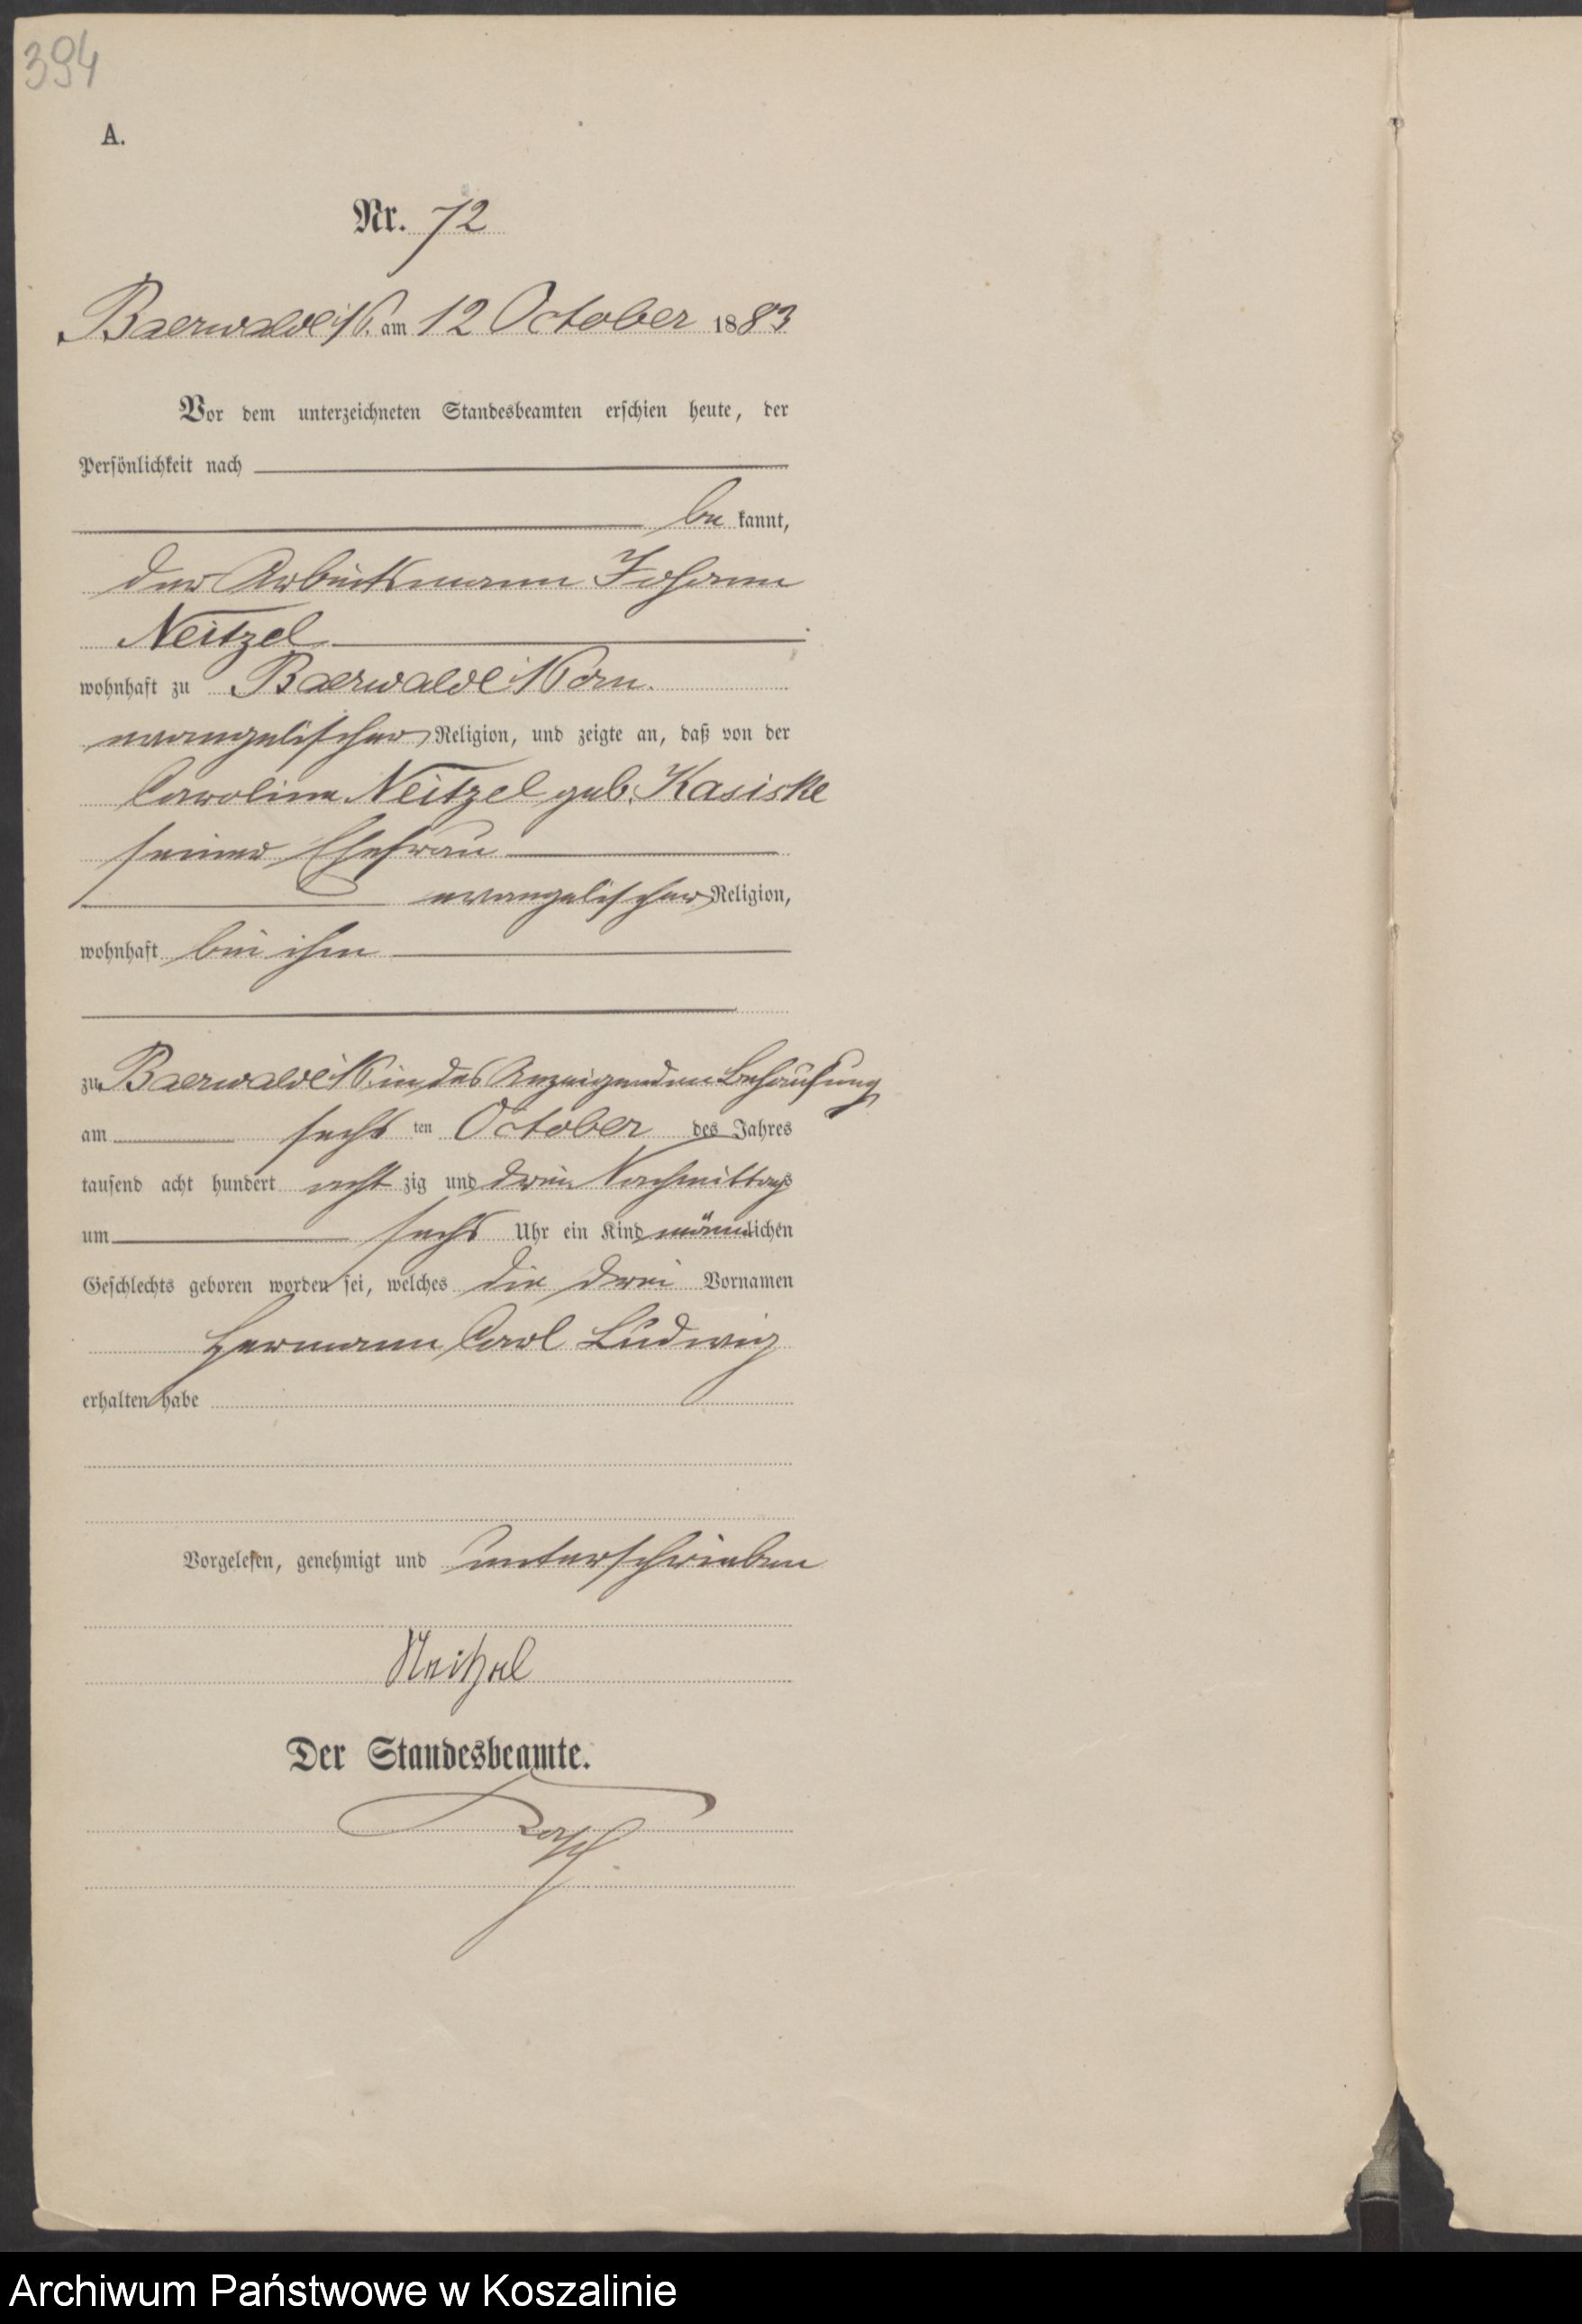 394
A.
Nr. 72
Baerwalde i/P. am 12 October 1883
Vor dem unterzeichneten Standesbeamten erschien heute, der
Persönlichkeit nach
be kannt,
der Arbeitsmann Johann
Neitzel
wohnhaft zu Baerwalde i/Pom.
evangelischer Religion, und zeigte an, daß von der
Caroline Neitzel geb. Kasiske
seiner Ehefrau
evangelischer Religion,
wohnhaft bei ihm
zu Baerwalde i/P. in des Anzeigenden Behausung
am sechs ten October des Jahres
tausend acht hundert acht zig und drei Nachmittags
um sechs Uhr ein Kind männlichen
Geschlechts geboren worden sei, welches die drei Vornamen
Hermann Carl Ludwig
erhalten habe
Vorgelesen, genehmigt und unterschrieben
Neitzel
Der Standesbeamte.
Archiwum Państwowe w Koszalinie